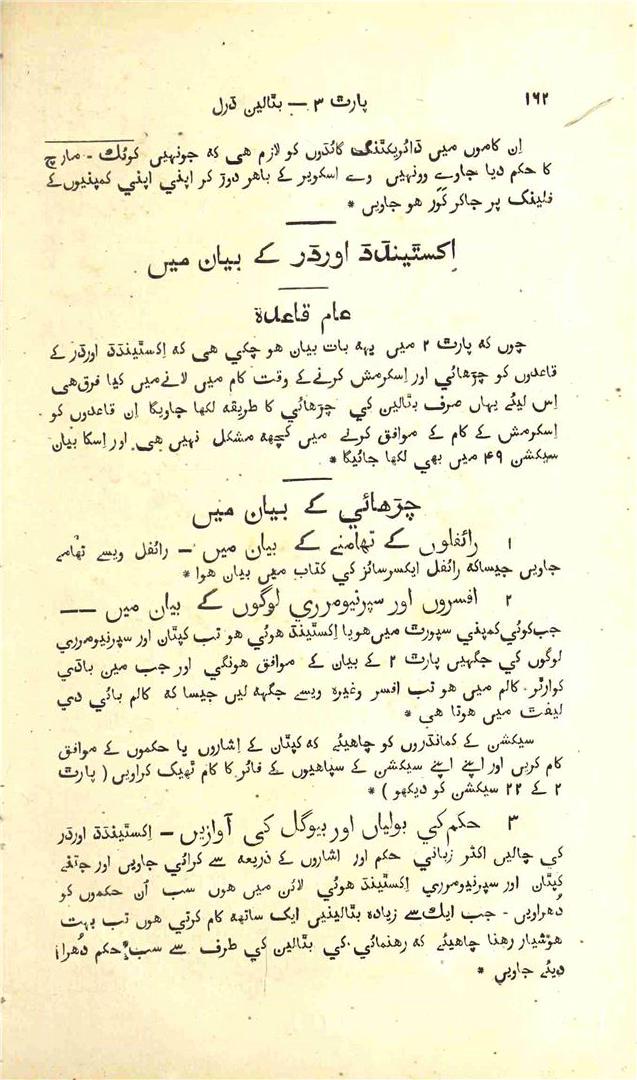 ۱۶۲
پارٹ ۳ — بٹالین ڈرل
اِن کاموں میں ڈائریکٹنگ گائڈوں کو لازم هی که جونہیں کوئک - مارچ
کا حکم دیا جاوے وونہیں وے اسکویر کے باهر دوڑ کر اپنی اپنی کمپنیوں کے
فلینک پر جاکر کَوَر هو جاویں *
اِکسٹینڈڈ اورڈر کے بیان میں
عام قاعدہ
چوں که پارٹ ۲ میں یہه بات بیان هو چکی هی که اِکسٹینڈڈ اورڈر کے
قاعدوں کو چڑھائي اور اِسکرمش کرنے کے وقت کام میں لانے میں کیا فرق هی
اِس لیئے یہاں صرف بٹالین کی چڑھائي کا طریقه لکھا جاویگا اِن قاعدوں کو
اِسکرمش کے کام کے موافق کرنے میں کچھه مشکل نہیں هی اور اِسکا بیان
سیکشن ۴۹ میں بھی لکھا جائیگا *
چڑھائي کے بیان میں
۱ رائفلوں کے تھامنے کے بیان میں — رائفل ویسے تھامے
جاویں جیسا که رائفل ایکسرسائز کي کتاب میں بیان هوا *
۲ افسروں اور سپرنیومرری لوگوں کے بیان میں —
جب کوئي کمپنی سپورٹ میں هو یا اِکسٹینڈ هوئي هو تب کپتان اور سپرنیومرری
لوگوں کي جگہیں پارٹ ۲ کے بیان کے موافق هونگي اور جب مین باڈی
کوارٹر کالم میں هو تب افسر وغیرہ ویسے جگہه لیں جیسا که کالم بائي دی
لیفٹ میں هوتا هی *
سیکشن کے کمانڈروں کو چاهیئے که کپتان کے اِشاروں یا حکموں کے موافق
کام کریں اور اپنے اپنے سیکشن کے سپاهیوں کے فائر کا کام ٹھیک کراویں ( پارٹ
۲ کے ۲۲ سیکشن کو دیکھو ) *
۳ حکم کي بولیاں اور بیوگل کی آوازیں — اِکسٹینڈڈ اورڈر
کي چالیں اکثر زباني حکم اور اشاروں کے ذریعه سے کرائي جاویں اور جتنے
کپتان اور سپرنیومرری اِکسٹینڈ هوئي لائن میں هوں سب اُن حکموں کو
دُهراویں - جب ایک سے زیادہ بٹالینیں ایک ساتھه کام کرتی هوں تب بہت
هوشیار رهنا چاهیئے که رهنمائي کي بٹالین کي طرف سے سب حکم دُهرا
دیئے جاویں *